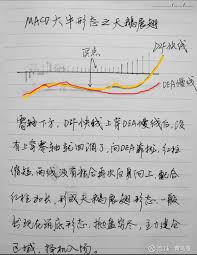 MACD大牛形态之天鹅展翅
误点
DIF快线
DEA慢线
零轴下方，DIF快线上穿DEA慢线后，没
有上穿零轴就回调了，向DEA靠拢，红柱
缩短，两线没有粘合再次反身向上，配合
红柱加长，形成天鹅展翅形态，一般
出现在筑底形态，抛盘穷尽，主力建仓
区域，择机入场。